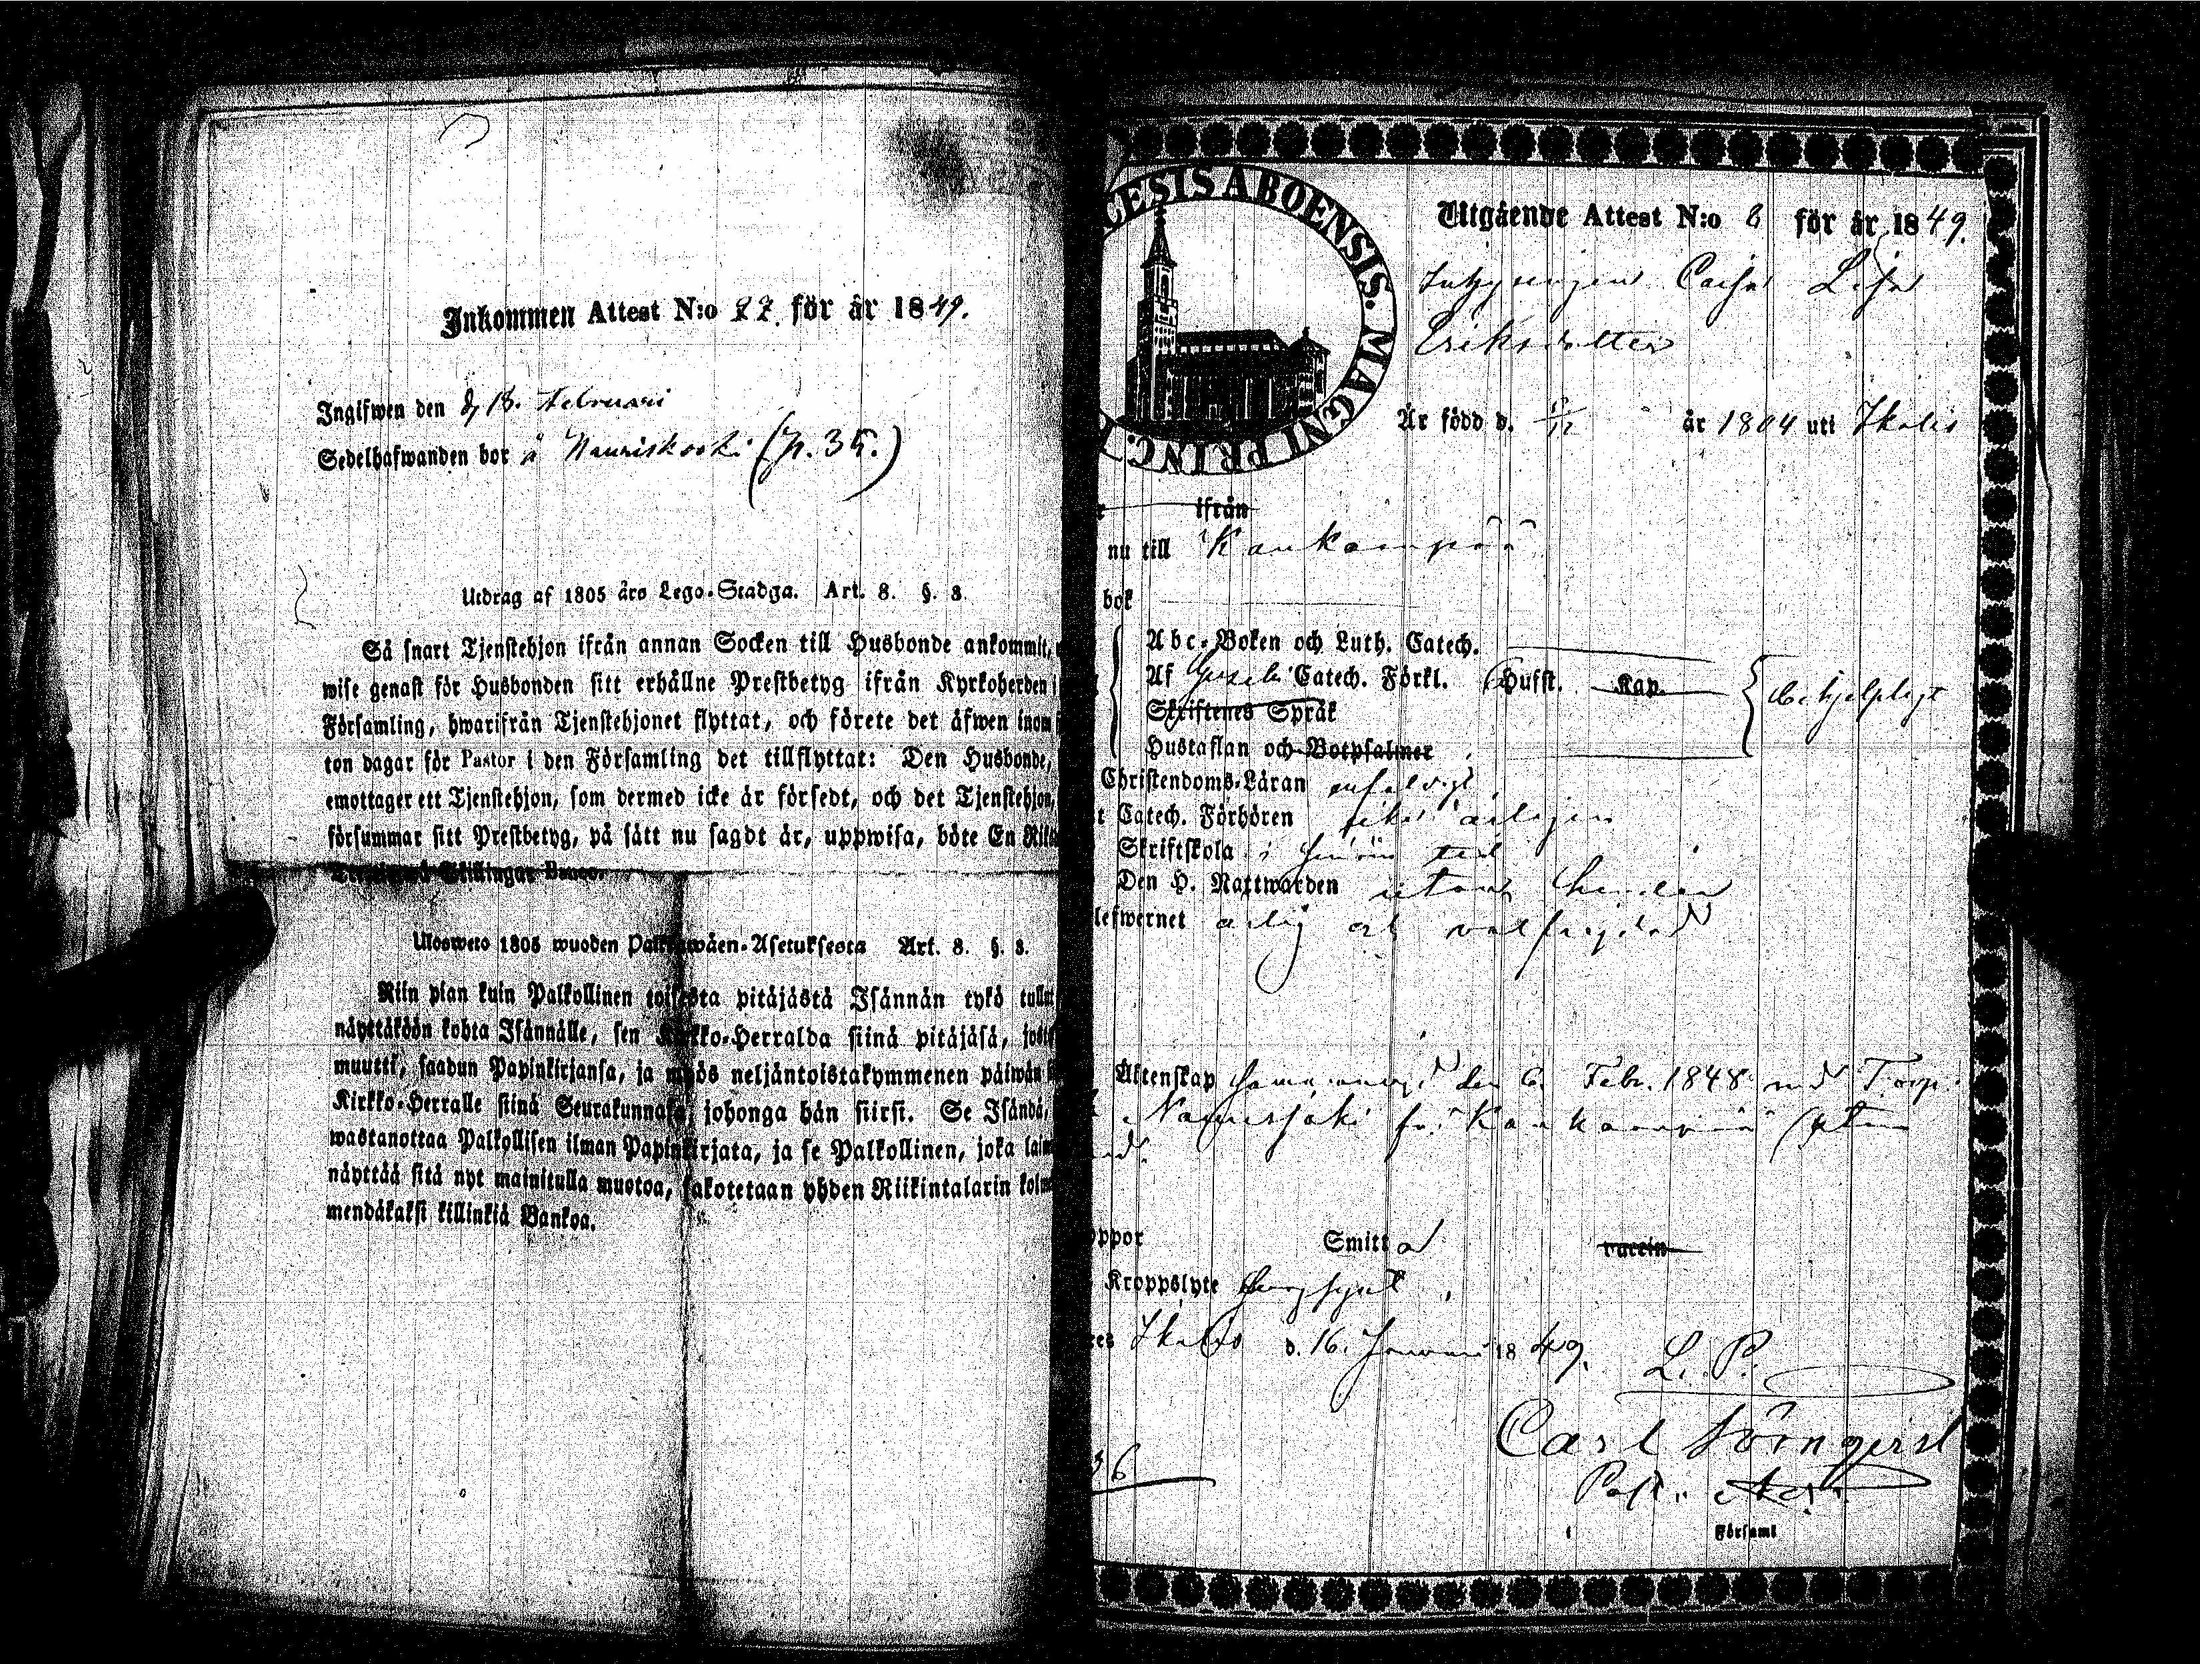 Inkommen Attest N:o 27. för år 1849.
Ingifwen den d, 13. Februari
Sedelhafwanden bor å Nauriskoski (p. 35.)
Utdrag af 1805 års Lego-Stadga. Art. 8. §. 3
Så snart Tjenstehjon ifrån annan Socken till Husbonde ankommit,
wise genast för Husbonden sitt erhållne Prestbetyg ifrån Kyrkoherden i
Församling, hwarifrån Tjenstehjonet flyttat, och förete det äfwen inom
ton dagar för Pastor i den Församling det tillflyttat: Den Husbonde,
emottager ett Tjenstehjon, som dermed icke är försedt, och det Tjenstehjon,
försummar sitt Prestbetyg, på sätt nu sagdt är, uppwisa, böte En
Skillingar Banco.
Ulosweto 1805 wuoden Art. 8. §. 3.
Niin pian kuin Palkollinen toisesta pitäjästä Isännän tykö
näyttäköön kohta Isännälle, sen Kirkko-Herralda siinä pitäjäsä,
muutti, saadun Papinkirjansa, ja myös neljäntoistakymmenen päiwän
Kirkko-Herralle siinä Seurakunnasa, johonga hän siirsi. Se Isändä,
wastanottaa Palkollisen ilman Papinkirjata, ja se Palkollinen, joka
näyttää sitä nyt mainitulla muotoa, sakotetaan yhden Riikintalarin
mendäkaksi killinkiä Bankoa.
CESIS ABOENSIS. MAGNI PRINC.
Utgående Attest N:o 8 för år 1849.
Inhysingen Caisa Lisa
Eriksdotter
Är född d. år 1804 uti Ikalis
ifrån
nu till Kankaanpää
bok
Abc-Boken och Luth. Catech.
Af Catech. Förkl. Hufst. Kap. behjelpligt
Skriftenes Språk
Hustaflan och Botpsalmer
Christendoms-Läran enfaldigt
Catech. Förhören årligen
Skriftskola i sin tid
Den H. Nattwarden utan hinder
lefwernet ärlig och välfrejdad
Äktenskap den 6. Febr. 1848 med Torp.
fr. Kankaanpää
ppor Smitta vaccin
Kroppslyte
Ikalis d. 16. Januari 1849. L. P.
Carl
Past. Adj.
36
i Församl